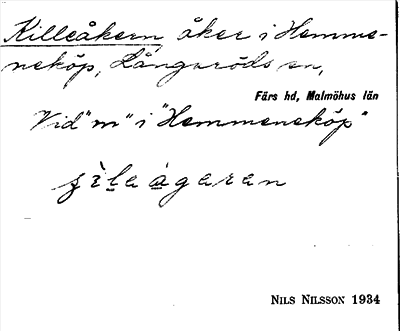 Killeåkern, åker i Hemme-
neköp, Långaröds sn,
Färs hd, Malmöhus län
Vid "m" i "Hemmeneköp"
ågeren
NILS NILSSON 1934